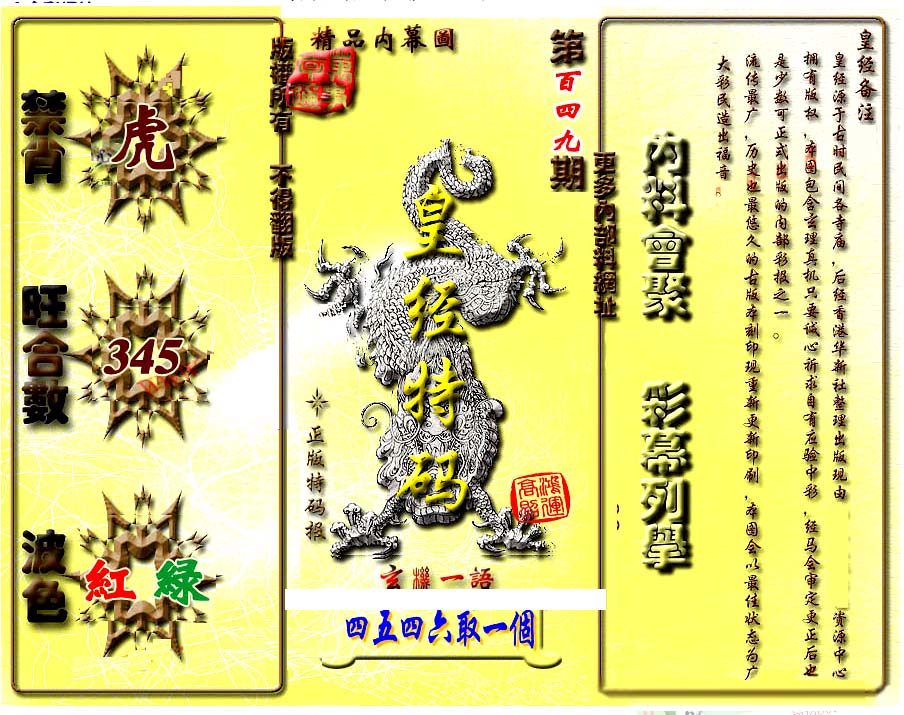 皇经备注
皇经源于古时民间各寺庙，后经香港华新社整理出版现由
资源中心
拥有版权，本图包含玄理真机只要诚心祈求自有应验中彩，经马会审定更正后也
是少数可正式出版的内部彩报之一。
流传最广，历史也最悠久的古版本刻印现重新更新印刷，本图会以最佳状态为广
大彩民造出福音
內料會聚
彩幕列舉
更多內部料網址
第百四九期
精品内幕圖
皇经特码
正版特码报
鴻運高照
玄機一語
四五四六取一個
版權所有 不得翻版
禁肖
虎
旺合數
345
波色
紅 綠